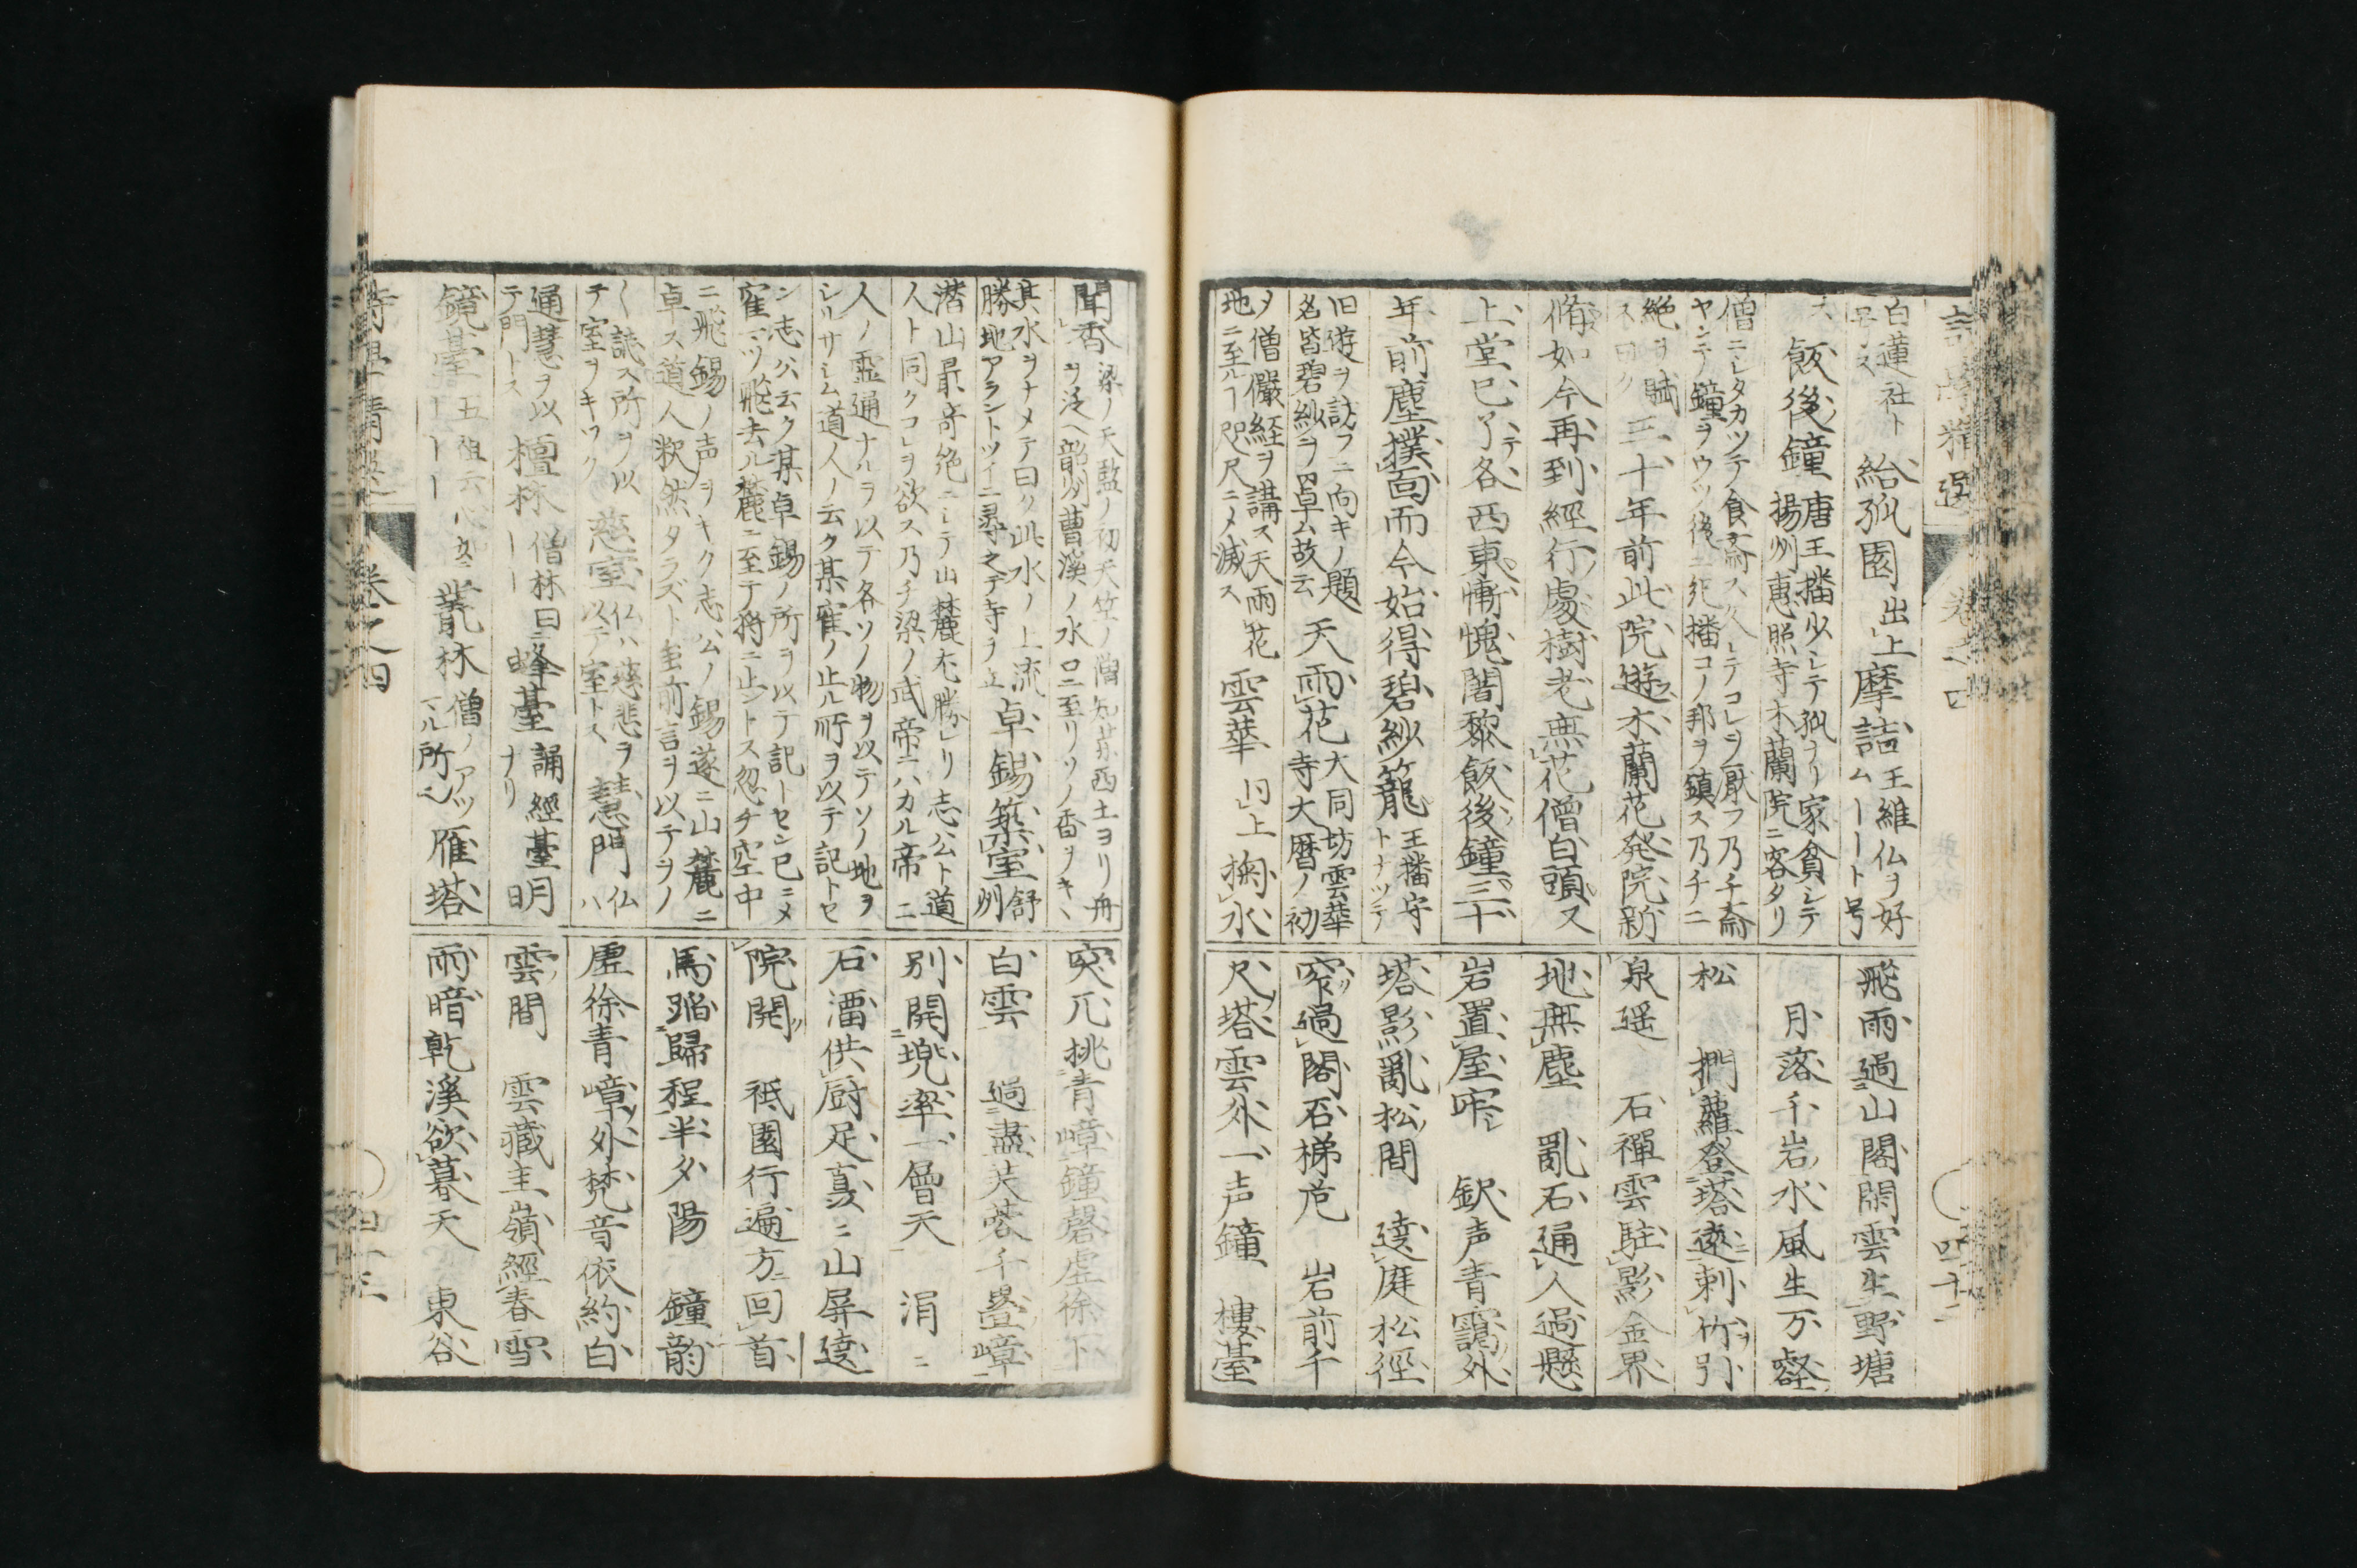 白蓮社ト
号ス
給孤園
出上
摩詰
王維仏ヲ好
ム――ト号
ス
飯後鐘
唐王播少シテ孤ヲリ家貧シテ
揚州恵照寺木蘭院ニ客タリ
僧ニシタカツテ食斎ス久シテコレヲ厭フ乃チ斎
ヤンテ鐘ヲウツ後ニ死播コノ邦ヲ鎮ス乃チ二
絶ヲ賦
ス曰ク
三十年前此院遊木蘭花発院新
脩如今再到経行處樹老無花僧白頭又
上堂已了各西東慚愧闍黎飯後鐘三十
年前塵撲面而今始得碧紗籠
王播守
トナツテ
旧遊ヲ訪フニ向キノ題
名皆碧紗ヲ
天雨花
大同坊雲華
寺大暦ノ初
僧儼経ヲ講ス天雨花
地ニ至ル┐咫尺ニメ滅ス
雲華
旧上
掬水
飛雨過山閣閑雲生野塘
月落千岩水風生万壑
松 捫蘿登塔遠刺竹引
泉遥 石禪雲駐影金界
地無塵 亂石通人過懸
岩置屋牢 釈声青靄外
塔影亂松間 遶庭松径
窄過閣石梯危 岩前千
尺塔雲外一声鐘 樓臺
詩学精選 巻之四 四十二
聞香
梁ノ天監ノ初天竺ノ僧知薬西土ヨリ舟
ヲ泛ヘ韶州曹溪ノ水口ニ至リソノ香ヲキヽ
其水ヲナメテ曰ク此水ノ上流
勝地アラントツイニ尋之テ寺ヲ立
卓錫築室
舒州
潜山最奇絶ニシテ山麓尤勝リ志公ト道
人ト同クコヲ欲ス乃チ梁ノ武帝ニハカル帝二
人ノ霊通ナルヲ以テ各ソノ物ヲ以テソノ地ヲ
シルサシム道人ノ云ク某寉ノ止ル所ヲ以テ記トセ
ン志公云ク某卓錫ノ所ヲ以テ記トセン已ニメ
寉マツ飛去ル麓ニ至テ将ニ止ントス忽チ空中
ニ飛錫ノ声ヲキク志公ノ錫遂ニ山麓ニ
卓ス道人釈然タラズト虽前言ヲ以テヲノ
〱誌ス所ヲ以
チ室ヲキツク
慈室
仏ハ慈悲ヲ
以テ室トス
慧門
仏ハ
通慧ヲ以
テ門トス
檀林
僧林曰
峰臺
誦経臺
ナリ
明
鏡臺
五祖云心
叢林
僧ノアツ
マル所也
雁塔
突兀挑青嶂鐘磬虚徐下
白雲 過盡芙蓉千疊嶂
別開兜率一層天 涓ニ
石溜供厨足裊ニ山屏遶
院開 祇園行遍方回首
馬蹈歸程半夕陽 鐘韵
虚徐青嶂外梵音依約白
雲間 雲藏主嶺經春雪
雨暗乾溪欲暮天 東谷
詩学精選 巻之四 四十三